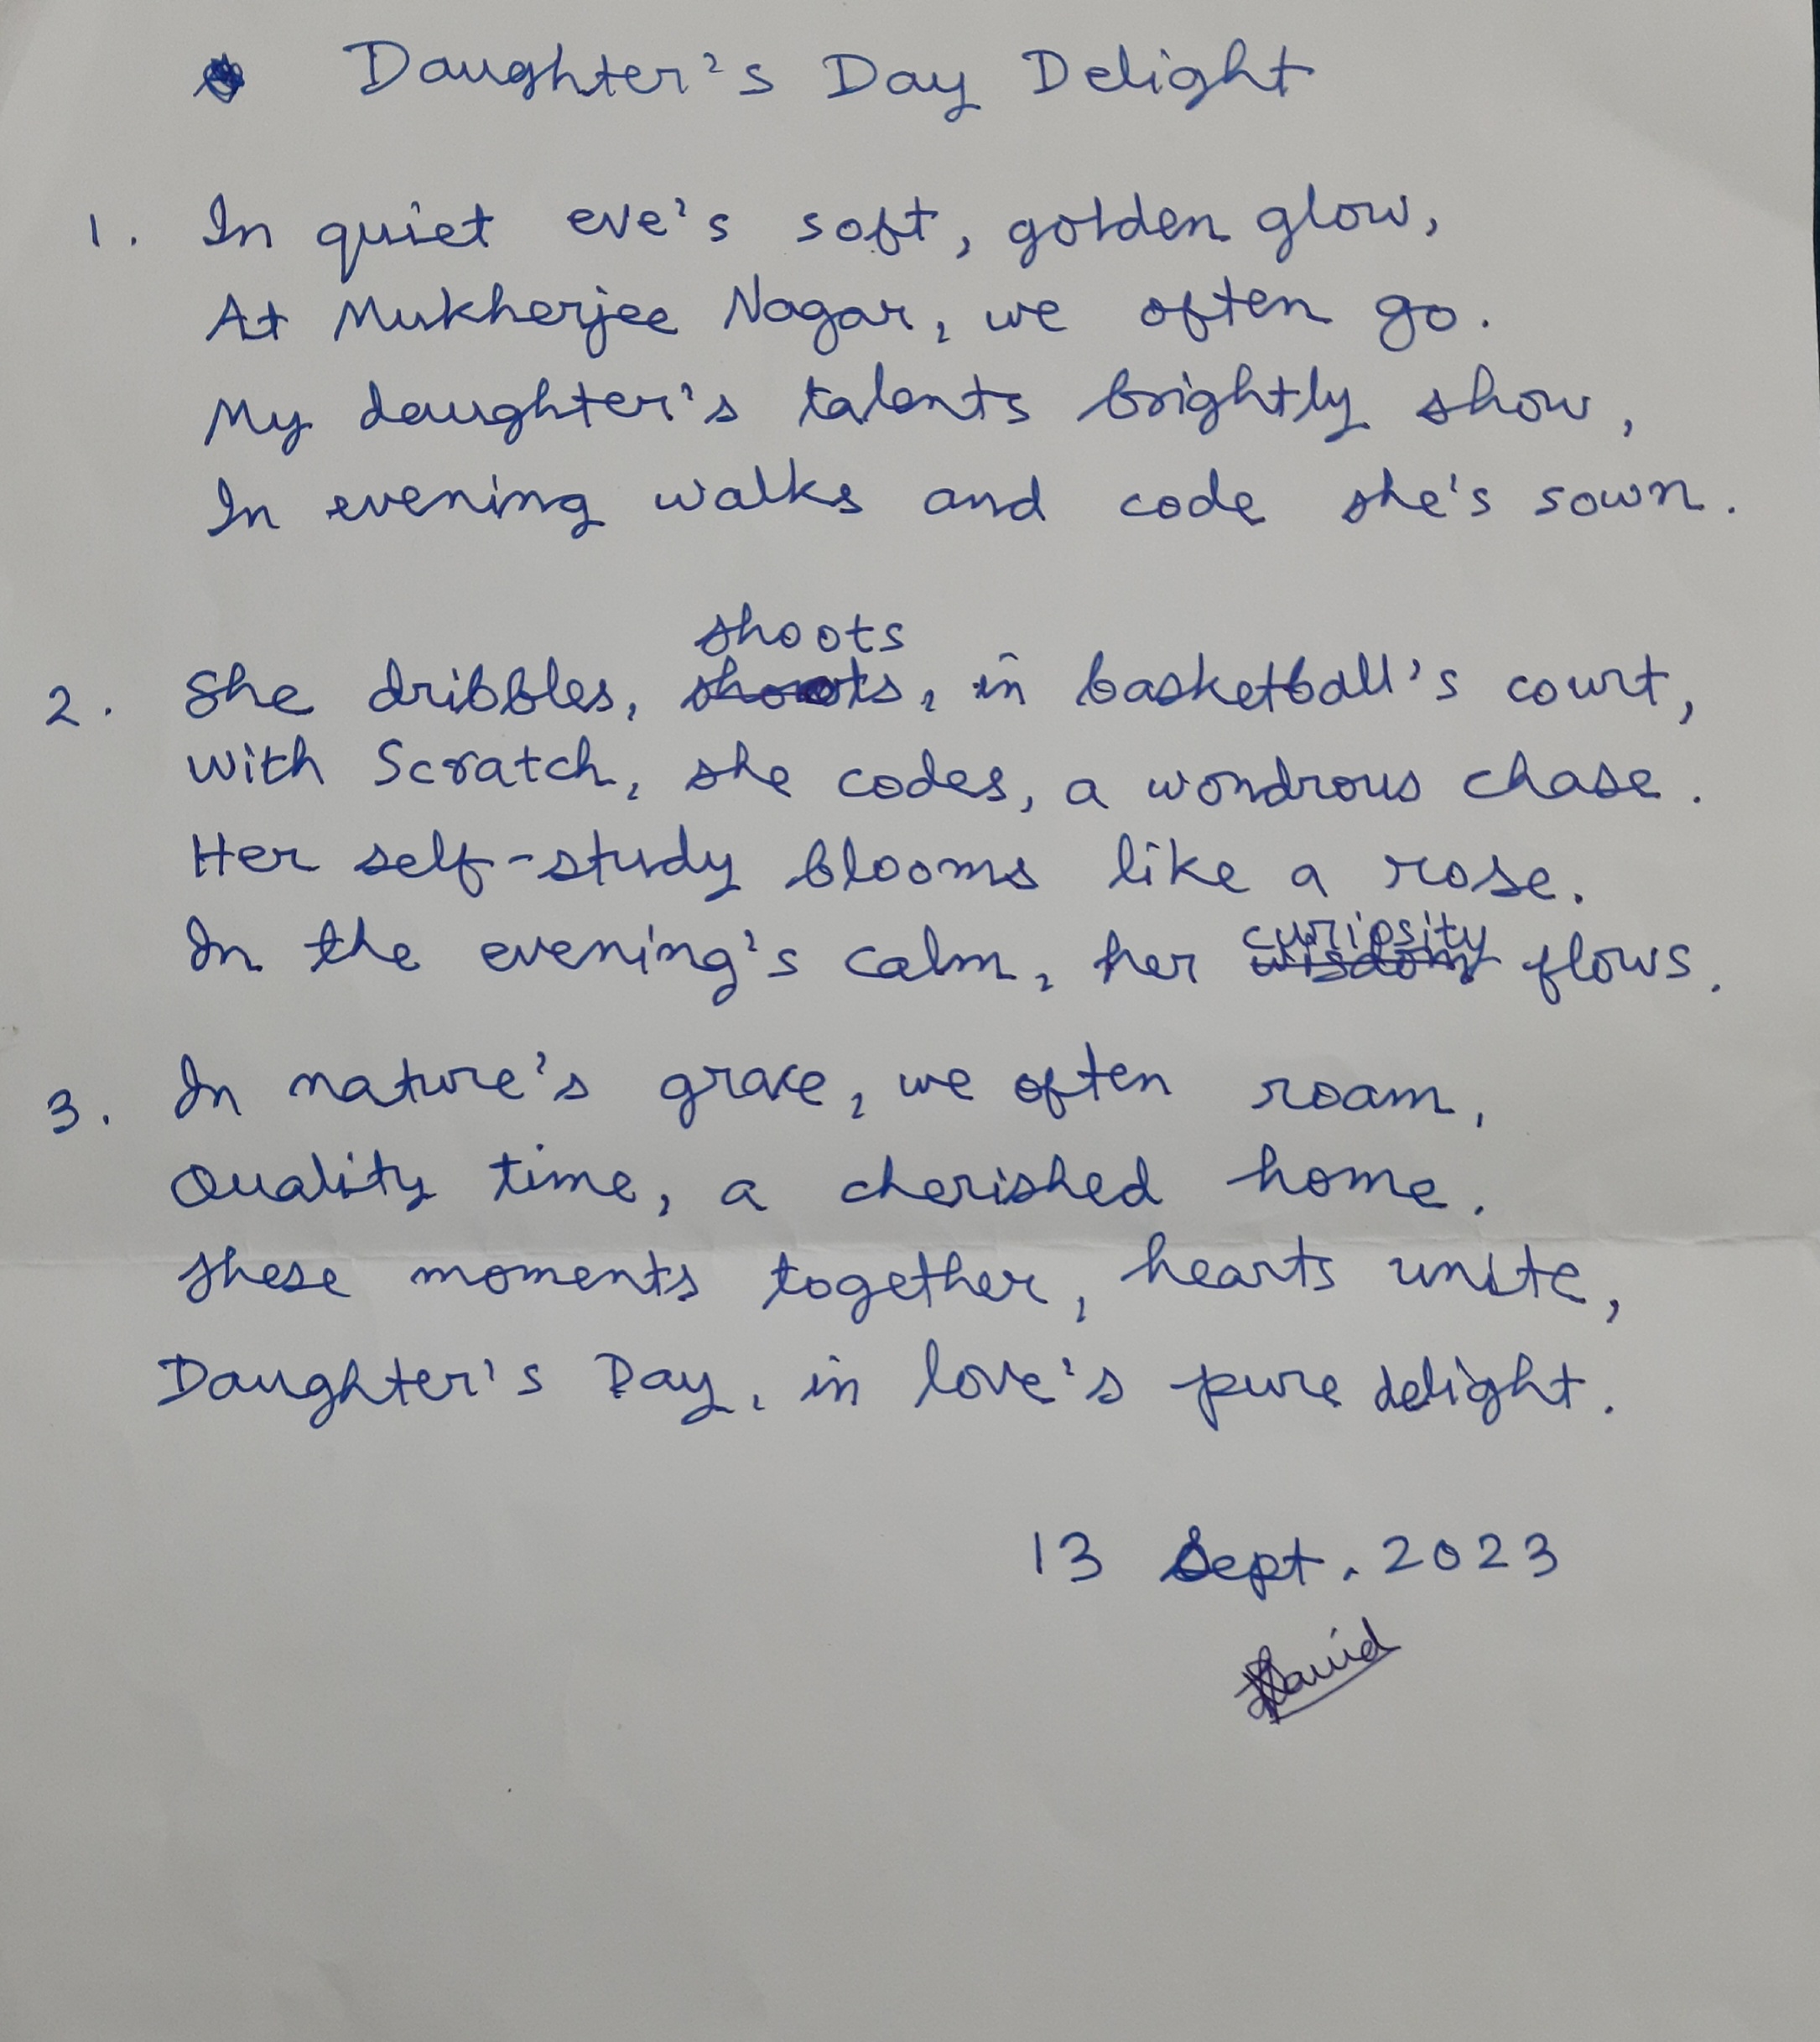 Daughter's Day Delight
1. In quiet eve's soft, golden glow,
At Mukherjee Nagar, we often go.
My daughter's talents brightly show,
In evening walks and code she's sown.
shoots
2. She dribbles, shoots, in basketball's court,
With Scratch, she codes, a wondrous chase.
Her self-study blooms like a rose.
curiosity
In the evening's calm, her wisdom flows.
3. In nature's grace, we often roam,
Quality time, a cherished home.
These moments together, hearts unite,
Daughter's Day, in love's pure delight.
13 Sept. 2023